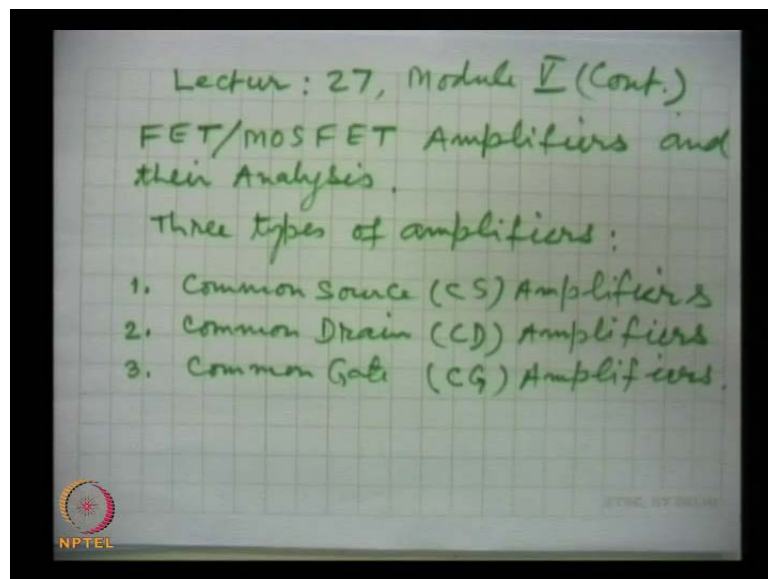 Lectur: 27, Module V (Cont.)
FET/MOSFET Amplifiers and
their Analysis.
Three types of amplifiers:
1. Common Source (CS) Amplifiers
2. Common Drain (CD) Amplifiers
3. Common Gate (CG) Amplifiers.
NPTEL